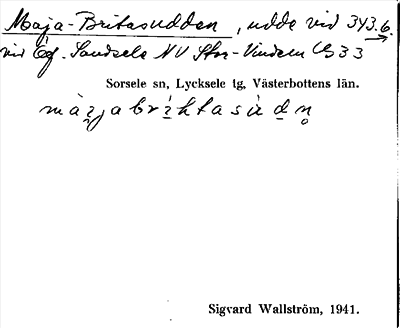 Maja-Britasudden, udde vid 343.6.
vid Äg. Sandsele NV Stor-Vindeln C533
Sorsele sn, Lycksele tg, Västerbottens län.
Sigvard Wallström, 1941.